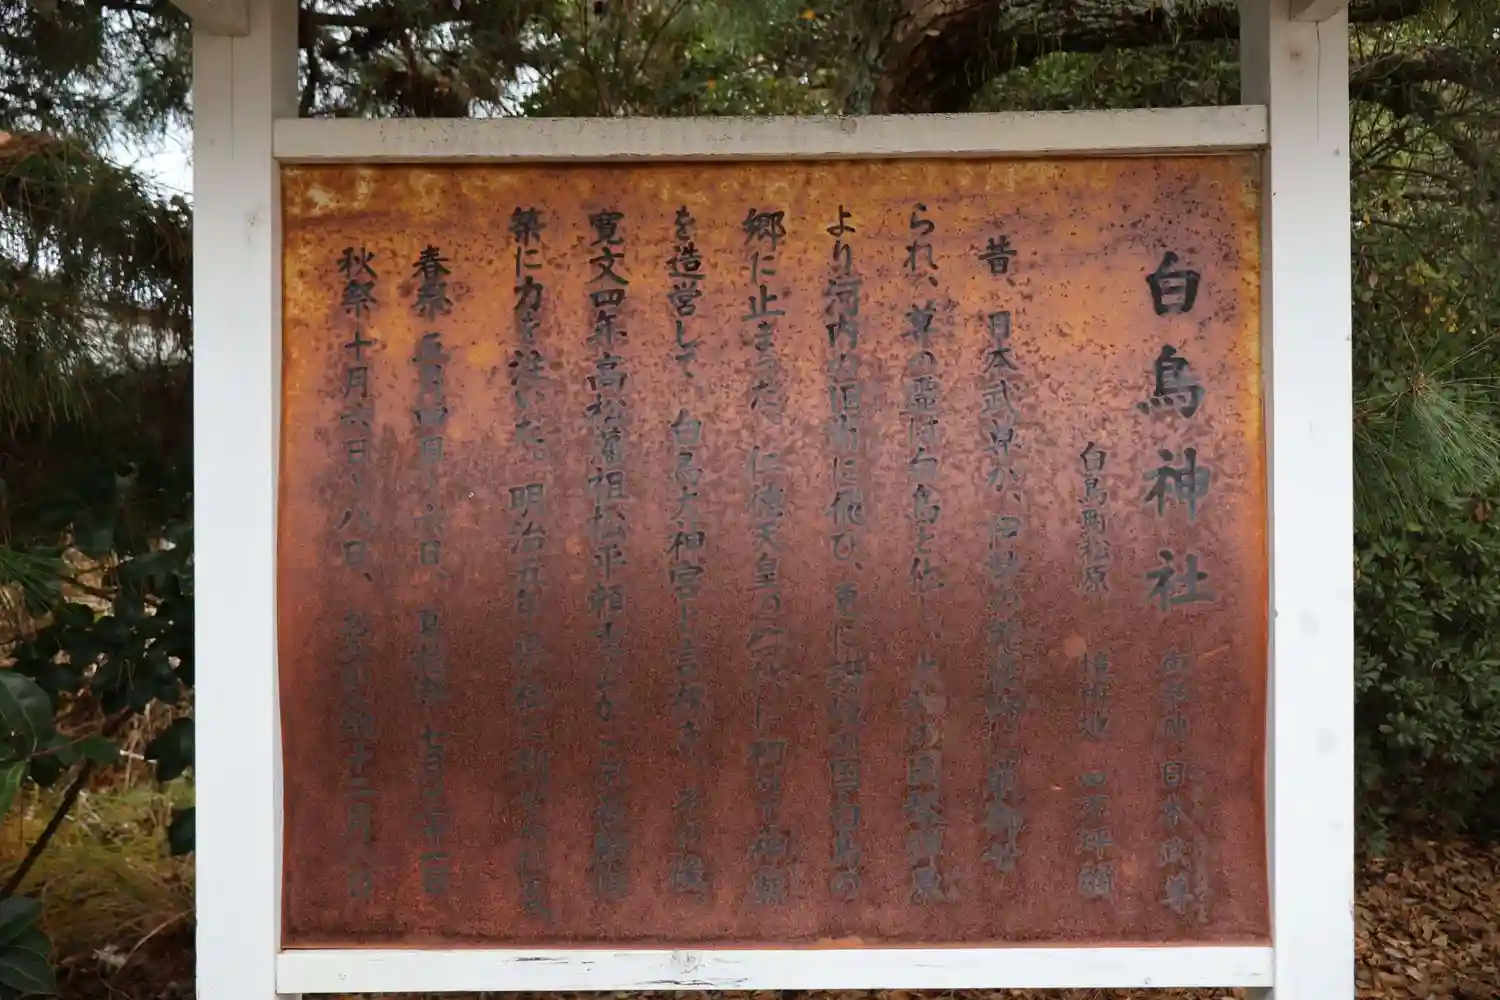 白鳥神社 御祭神 日本武尊
白鳥町松原 境内地 四万坪
昔、日本武尊が、伊勢の能褒野に
られ、尊の霊は白鳥と化し、大和の国琴弾原
より河内の旧市に飛び、更に讃岐の国白鳥の
郷に止まった。仁徳天皇の に初めて神廟
を造営して、白鳥大神宮と言われき、その後、
寛文四年高松藩祖松平頼重
築に力を注いだ。明治五年県社に列せられた。
春祭 五月四日 六日、夏 七月二十一日
秋祭 十月六日 八日、 十二月八日